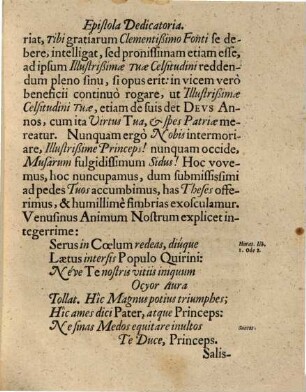 Epistola Dedicatoria.
riat, Tibi gratiarum Clementißimo Fonti se de-
bere, intelligat, sed pronissimam etiam esse,
ad ipsum Illustrißimæ Tuæ Celsitudini redden-
dum pleno sinu, si opus erit: in vicem verò
beneficii continuò rogare, ut Illustrißimæ
Celsitudini Tuæ, etiam de suis det DEVS An-
nos, cum ita Virtus Tua, & spes Patriæ me-
reatur. Nunquam ergò Nobis intermori-
are, Illustrißime Princeps! nunquam occide,
Musarum fulgidissimum Sidus! Hoc vove-
mus, hoc nuncupamus, dum submississimi
ad pedes Tuos accumbimus, has Theses offe-
rimus, & humillimè fimbrias exosculamur.
Venusinus Animum Nostrum explicet in-
tegerrime:
Serus in Cœlum redeas, diuque
Horat. lib.
1. Ode 2.
Lætus intersis Populo Quirini:
Néve Te nostris vitiis iniquum
Ocyor Aura
Tollat. Hîc Magnus potius triumphes;
Hîc ames dici Pater, atque Princeps:
Ne sinas Medos equitare inultos
Te Duce, Princeps.
Salis-